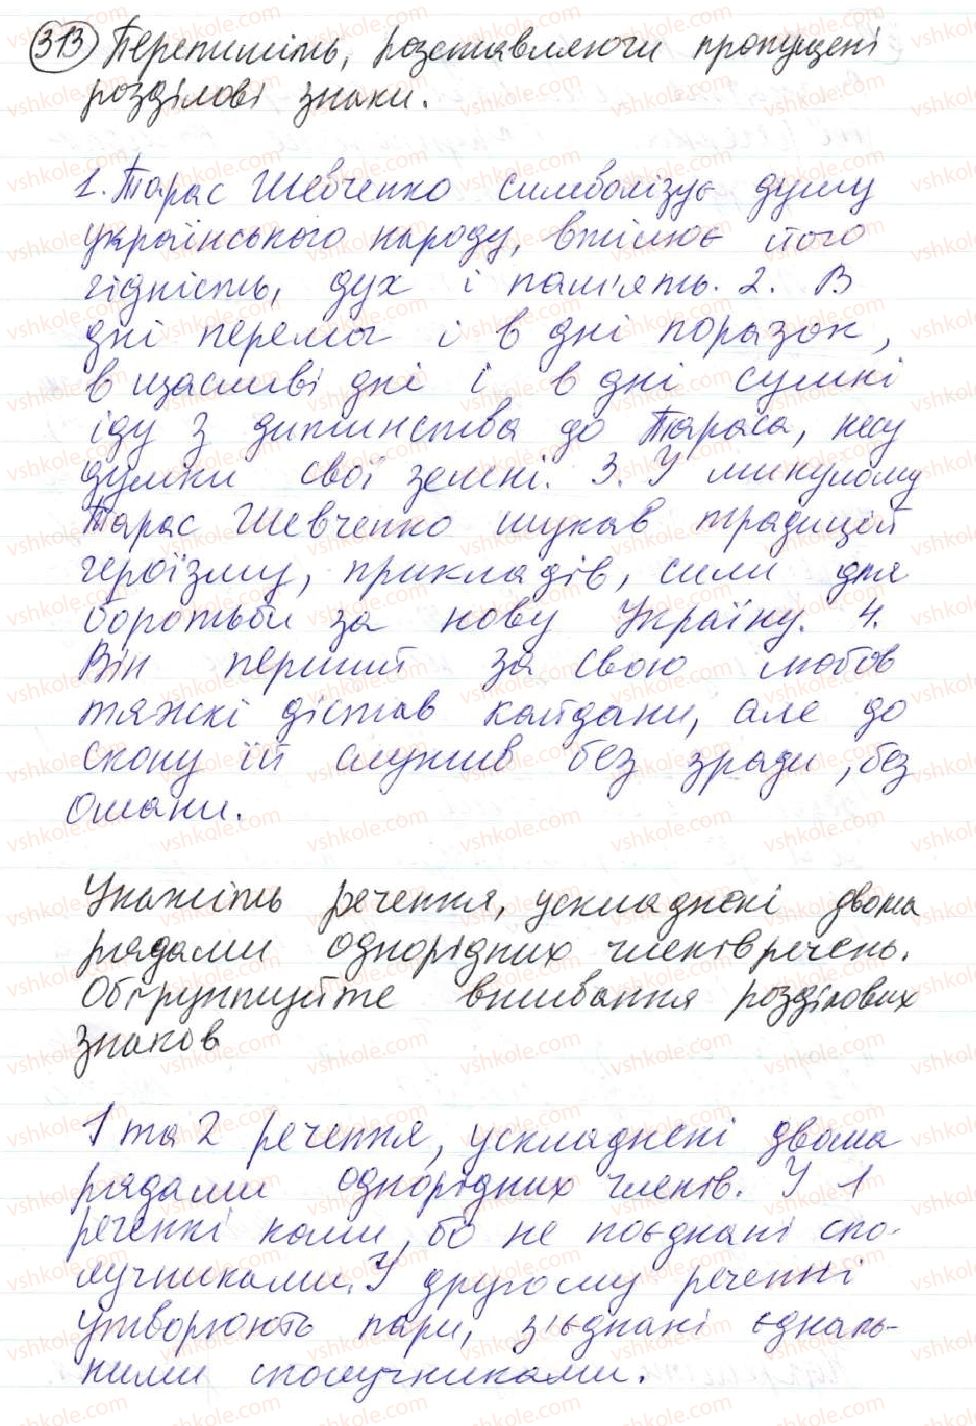 313 Перепишіть, розставляючи пропущені
розділові знаки.
1. Тарас Шевченко символізує душу
українського народу, втілює його
гідність, дух і пам'ять. 2. В
дні перемог і в дні поразок,
в щасливі дні і в дні сумні
іду з дитинства до Тараса, несу
думки свої земні. 3. У минулому
Тарас Шевченко шукав традицій
героїзму, прикладів, сили для
боротьби за нову Україну. 4.
Він перший за свою любов
тяжкі дістав кайдани, але до
скону їй служив без зради, без
омани.
Укажіть речення, ускладнені двома
рядами однорідних членів речень.
Обґрунтуйте вживання розділових
знаків
1 та 2 речення, ускладнені двома
рядами однорідних членів. У 1
реченні коми, бо не поєднані спо-
лучниками. У другому реченні
утворюють пари, з'єднані єдналь-
ними сполучниками.